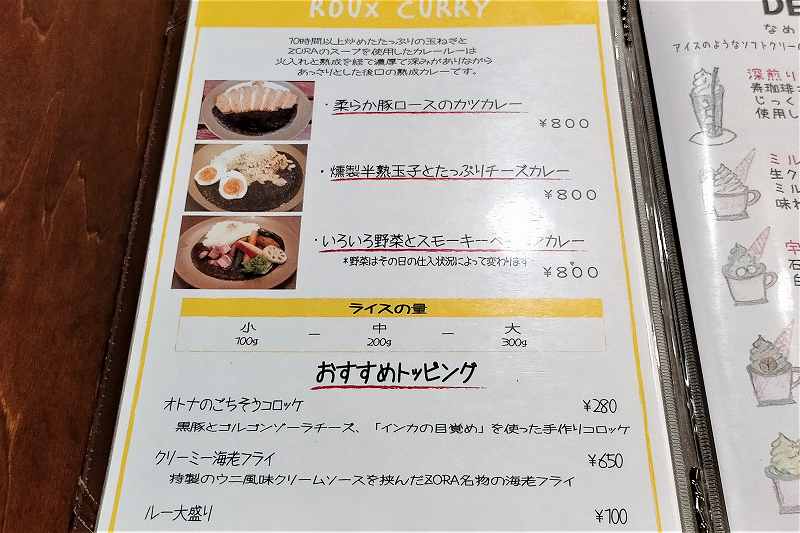 ROUX CURRY
10時間以上炒めたたっぷりの玉ねぎと
ZORAのスープを使用したカレールーは
火入れと熟成を経て濃厚で深みがありながら
あっさりとした後口の熟成カレーです。
・柔らか豚ロースのカツカレー
¥800
・燻製半熟玉子とたっぷりチーズカレー
¥800
・いろいろ野菜とスモーキーベーコンカレー
*野菜はその日の仕入状況によって変わります
¥800
ライスの量
小 — 中 — 大
100g 200g 300g
おすすめトッピング
オトナのごちそうコロッケ ¥280
黒豚とゴルゴンゾーラチーズ、「インカの目覚め」を使った手作りコロッケ
クリーミー海老フライ ¥650
特製のウニ風味クリームソースを挟んだZORA名物の海老フライ
ルー大盛り ¥100
DE
なめ
アイスのようなソフトクリーム
深煎り
寿珈琲
じっく
使用し
ミル
生ク
ミル
味わ
宇
石
白